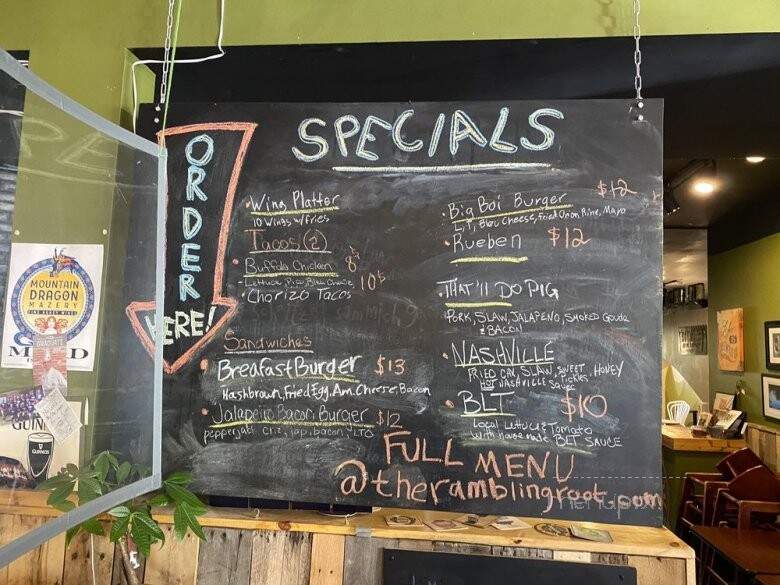 SPECIALS
ORDER
HERE!
• Wing Platter
10 Wings w/Fries
Tacos (2)
• Buffalo Chicken 8⁵
Lettuce, Pico, Bleu Cheese
• Chorizo Tacos 10⁵
Sandwiches
• BreafastBurger $13
Hashbrown, Fried Egg, Am. Cheese, Bacon
• Jalapeño Bacon Burger $12
pepperjack chz, jap, bacon, LTO
• Big Boi Burger $12
L,T, Bleu Cheese, Fried Onion Ring, Mayo
• Rueben $12
• THAT'll DO PIG
PORK, SLAW, JALAPENO, SMOKED Gouda
& BACON
• NASHVILLE
FRIED CKN, SLAW, SWEET HONEY
HOT NASHVILLE Sauce Pickles
• BLT $10
Local Lettuce & Tomato
with house made BLT SAUCE
FULL MENU
@theramblingroot.com
MOUNTAIN
DRAGON
MAZERY
FINE HONEY WINES
GUINNESS